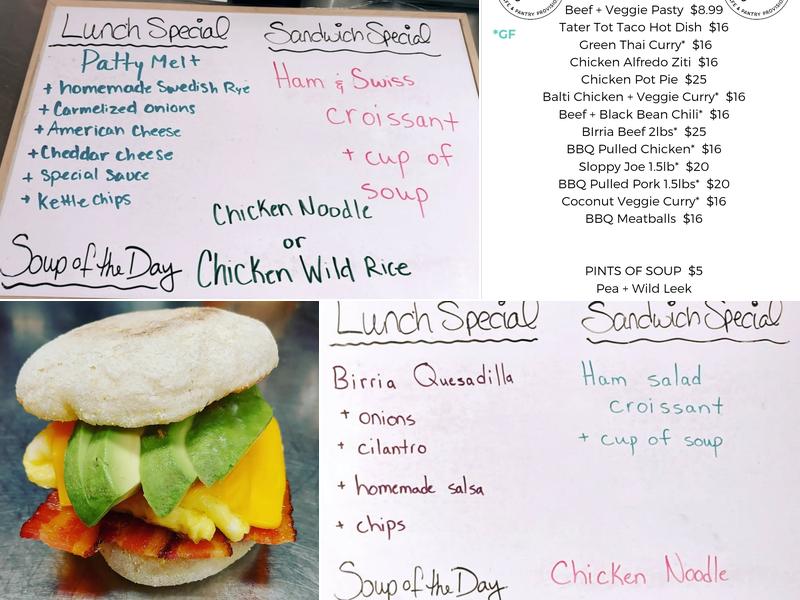 Lunch Special
Patty Melt
+ homemade Swedish Rye
+ Carmelized onions
+ American Cheese
+ Cheddar cheese
+ Special Sauce
+ Kettle Chips
Sandwich Special
Ham & Swiss
croissant
+ cup of
soup
Soup of the Day
Chicken Noodle
or
Chicken Wild Rice
& PANTRY PROVISIO
*GF
Beef + Veggie Pasty $8.99
Tater Tot Taco Hot Dish $16
Green Thai Curry* $16
Chicken Alfredo Ziti $16
Chicken Pot Pie $25
Balti Chicken + Veggie Curry* $16
Beef + Black Bean Chili* $16
BIrria Beef 2lbs* $25
BBQ Pulled Chicken* $16
Sloppy Joe 1.5lb* $20
BBQ Pulled Pork 1.5lbs* $20
Coconut Veggie Curry* $16
BBQ Meatballs $16
PINTS OF SOUP $5
Pea + Wild Leek
Lunch Special
Birria Quesadilla
+ onions
+ cilantro
+ homemade salsa
+ chips
Sandwich Special
Ham salad
croissant
+ cup of soup
Soup of the Day
Chicken Noodle